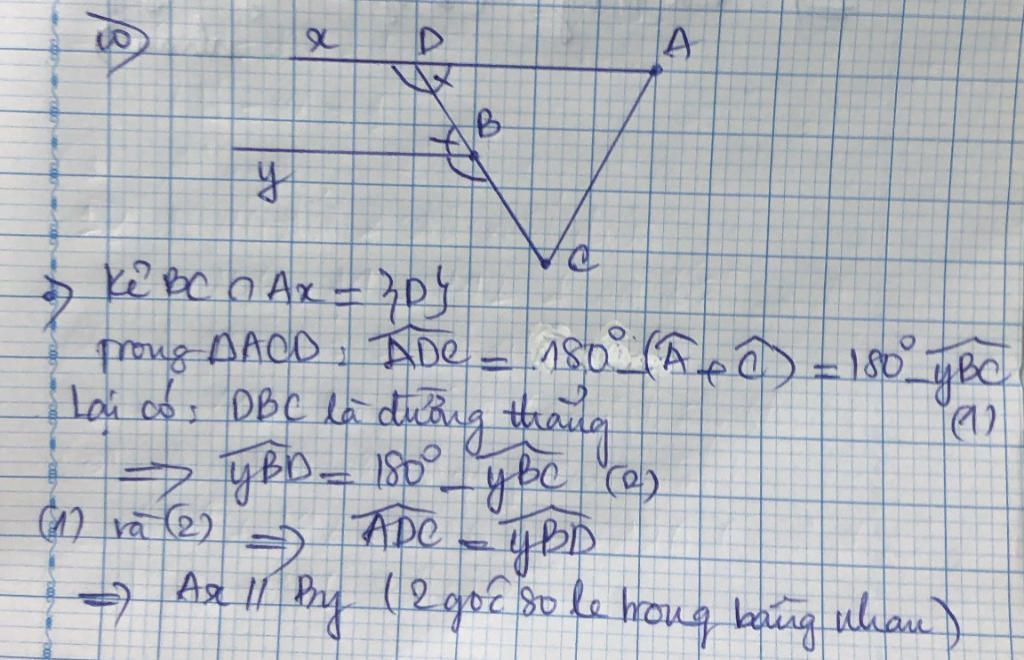 b)
x D A
B
y
C
=> Kẻ BC ∩ Ax = {D}
Trong ΔACD: \widehat{ADC} = 180° - (\widehat{A} + \widehat{C}) = 180° - \widehat{yBC}
(1)
Lại có: DBC là đường thẳng
=> \widehat{yBD} = 180° - \widehat{yBC} (2)
(1) và (2) => \widehat{ADC} = \widehat{yBD}
=> Ax // By (2 góc so le trong bằng nhau)